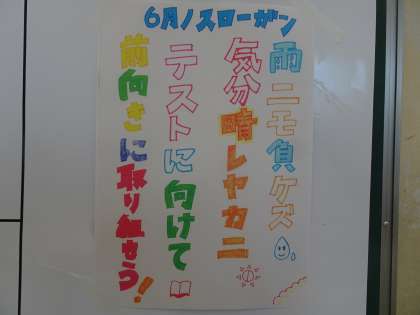 6月ノスローガン
雨ニモ負ケズ
気分晴レヤカニ
テストに向けて
前向きに取り組もう!